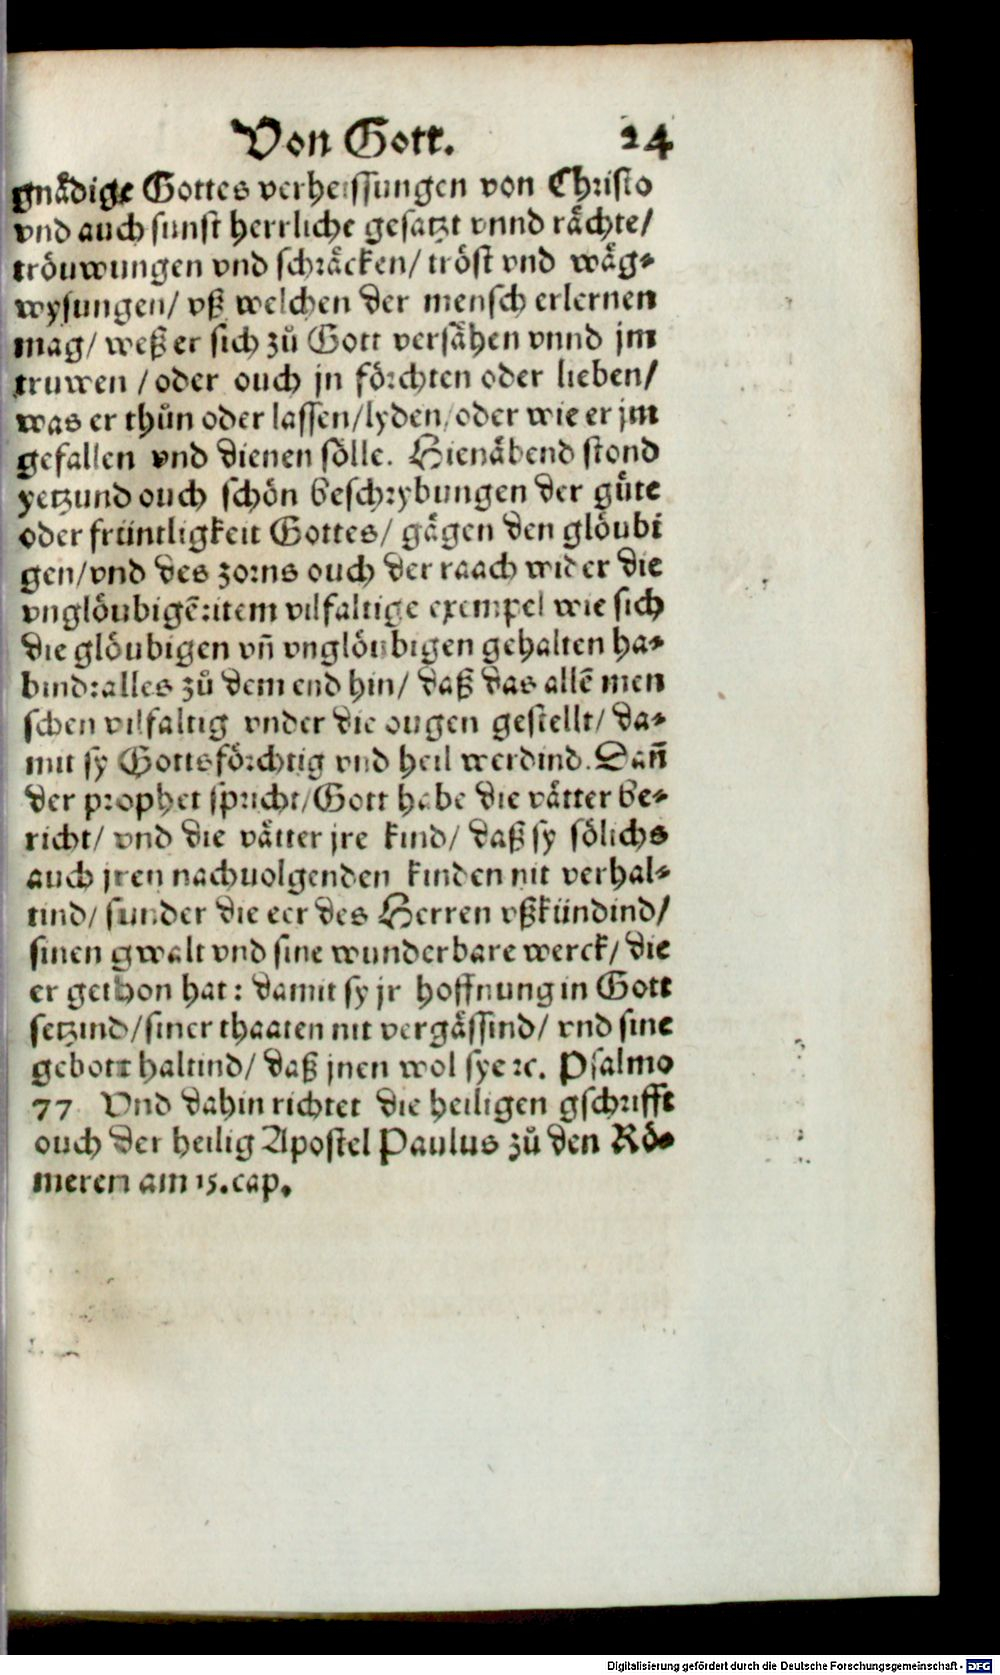 Von Gott. 24
gnådige Gottes verheissungen von Christo
vnd auch sunst herrliche gesatzt vnnd råchte/
tröuwungen vnd schräcken/ tröst vnd wäg⸗
wysungen/ vß welchen der mensch erlernen
mag/ weß er sich zů Gott versähen vnnd jm
truwen / oder ouch jn förchten oder lieben/
was er thůn oder lassen/lyden/oder wie er jm
gefallen vnd dienen sölle. Hienäbend stond
yetzund ouch schön beschrybungen der gůte
oder früntligkeit Gottes/ gägen den glöubi
gen/vnd des zorns ouch der raach wider die
vnglöubigẽ:item vilfaltige exempel wie sich
die glöubigen vñ vnglöubigen gehalten ha⸗
bind:alles zů dem end hin/ daß das allẽ men
schen vilfaltig vnder die ougen gestellt/ da⸗
mit sy Gottsförchtig vnd heil werdind. Dañ
der prophet spricht/Gott habe die vätter be⸗
richt/ vnd die vätter jre kind/ daß sy sölichs
auch jren nachuolgenden kinden nit verhal⸗
tind/ sunder die eer des Herren vßkündind/
sinen gwalt vnd sine wunderbare werck/ die
er gethon hat: damit sy jr hoffnung in Gott
setzind/siner thaaten nit vergässind/ vnd sine
gebott haltind/ daß jnen wol sye ꝛc. Psalmo
77 Vnd dahin richtet die heiligen gschrifft
ouch der heilig Apostel Paulus zů den Rö⸗
meren am 15.cap.
Digitalisierung gefördert durch die Deutsche Forschungsgemeinschaft - DFG